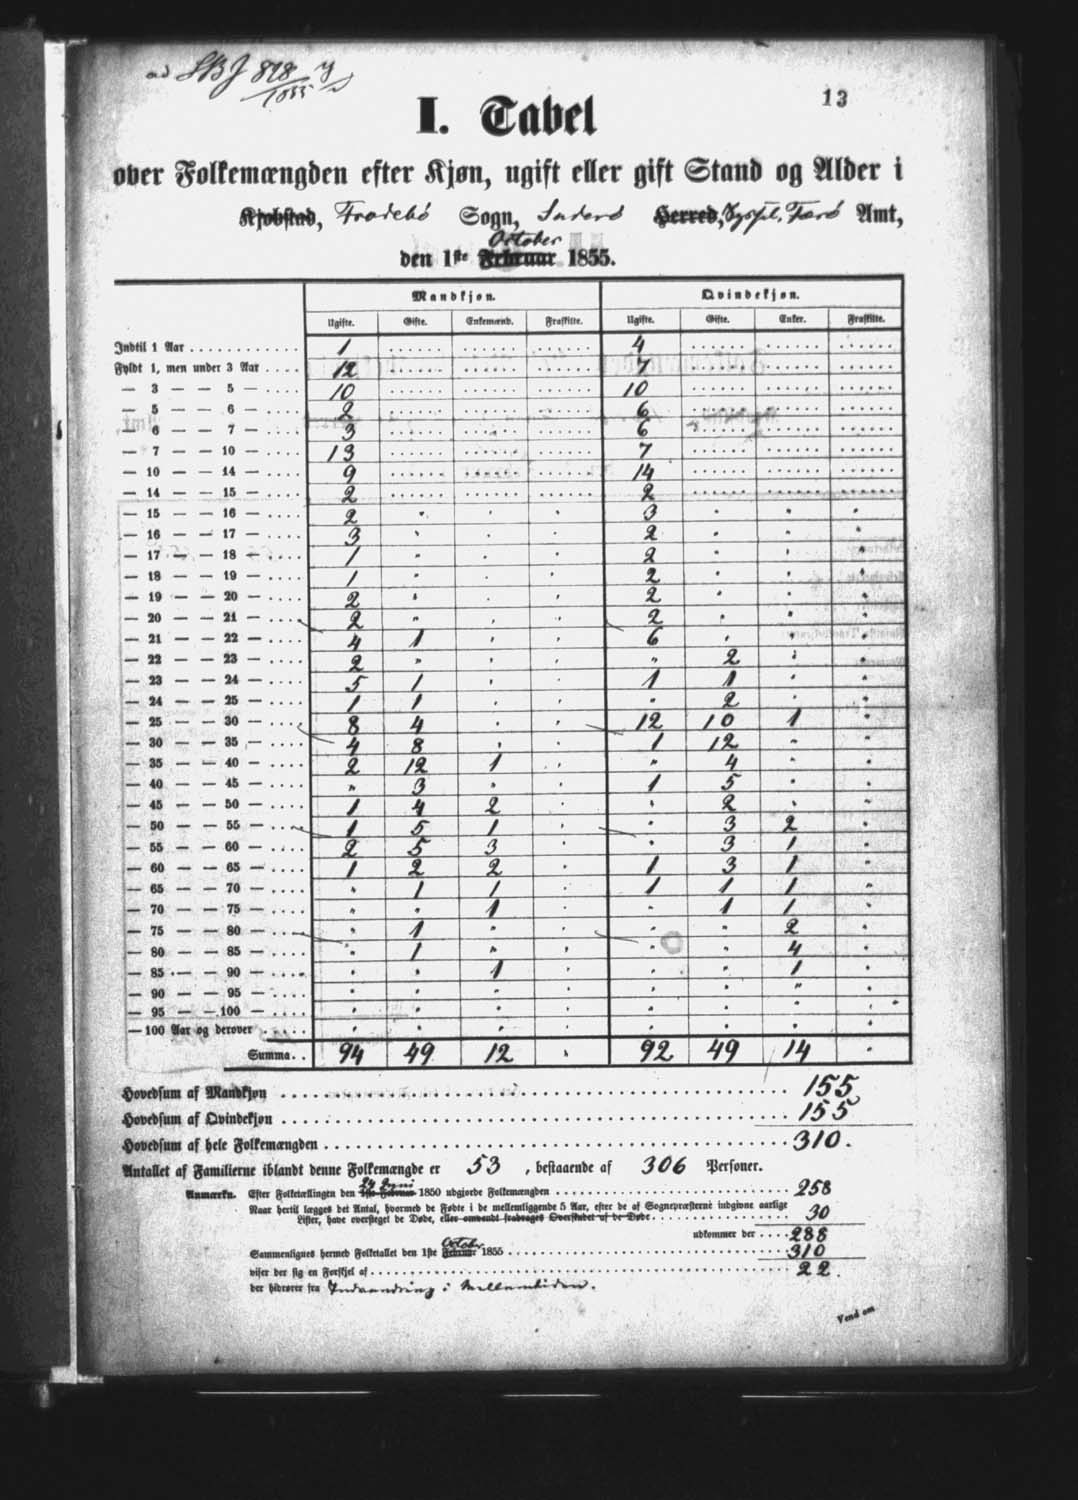 ad SBJ 878
1055
13
I. Tabel
over Folkemængden efter Kjøn, ugift eller gift Stand og Alder i
Kjøbstad, Frodebø Sogn, Suderø Herred, Syssel, Færø Amt,
October
den 1ste Februar 1855.
Mandkjøn. Qvindekjøn.
Ugifte. Gifte. Enkemænd. Fraskilte. Ugifte. Gifte. Enker. Fraskilte.
Indtil 1 Aar 1 4
Fyldt 1, men under 3 Aar 12 7
— 3 — — 5 — 10 10
— 5 — — 6 — 2 6
— 6 — — 7 — 3 6
— 7 — — 10 — 13 7
— 10 — — 14 — 9 14
— 14 — — 15 — 2 2
— 15 — — 16 — 2 " " " 3 " " "
— 16 — — 17 — 3 " " " 2 " " "
— 17 — — 18 — 1 " " " 2 " " "
— 18 — — 19 — 1 " " " 2 " " "
— 19 — — 20 — 2 " " " 2 " " "
— 20 — — 21 — 2 " " " 2 " " "
— 21 — — 22 — 4 1 " " 6 " " "
— 22 — — 23 — 2 " " " " 2 " "
— 23 — — 24 — 5 1 " " 1 1 " "
— 24 — — 25 — 1 1 " " " 2 " "
— 25 — — 30 — 8 4 " " 12 10 1 "
— 30 — — 35 — 4 8 " " 1 12 " "
— 35 — — 40 — 2 12 1 " " 4 " "
— 40 — — 45 — " 3 " " 1 5 " "
— 45 — — 50 — 1 4 2 " " 2 " "
— 50 — — 55 — 1 5 1 " " 3 2 "
— 55 — — 60 — 2 5 3 " " 3 1 "
— 60 — — 65 — 1 2 2 " 1 3 1 "
— 65 — — 70 — " 1 1 " 1 1 1 "
— 70 — — 75 — " " 1 " " 1 1 "
— 75 — — 80 — " 1 " " " " 2 "
— 80 — — 85 — " 1 " " " " 4 "
— 85 — — 90 — " " 1 " " " 1 "
— 90 — — 95 — " " " " " " " "
— 95 — — 100 — " " " " " " " "
— 100 Aar og derover " " " " " " " "
Summa 94 49 12 " 92 49 14 "
Hovedsum af Mandkjøn 155
Hovedsum af Qvindekjøn 155
Hovedsum af hele Folkemængden 310.
Antallet af Familierne iblandt denne Folkemængde er 53, bestaaende af 306 Personer.
24 Juni
Anmærkn. Efter Folketællingen den 1ste Februar 1850 udgjorde Folkemængden 258
Naar hertil lægges det Antal, hvormed de Fødte i de mellemliggende 5 Aar, efter de af Sognepræsterne indgivne aarlige
Lister, have oversteget de Døde, eller omvendt fradrages Overskudet af de Døde 30
udkommer der 288
October
Sammenlignes hermed Folketallet den 1ste Februar 1855 310
viser der sig en Forskjel af 22.
der hidrører fra Indvandring i Mellemtiden.
Vend om